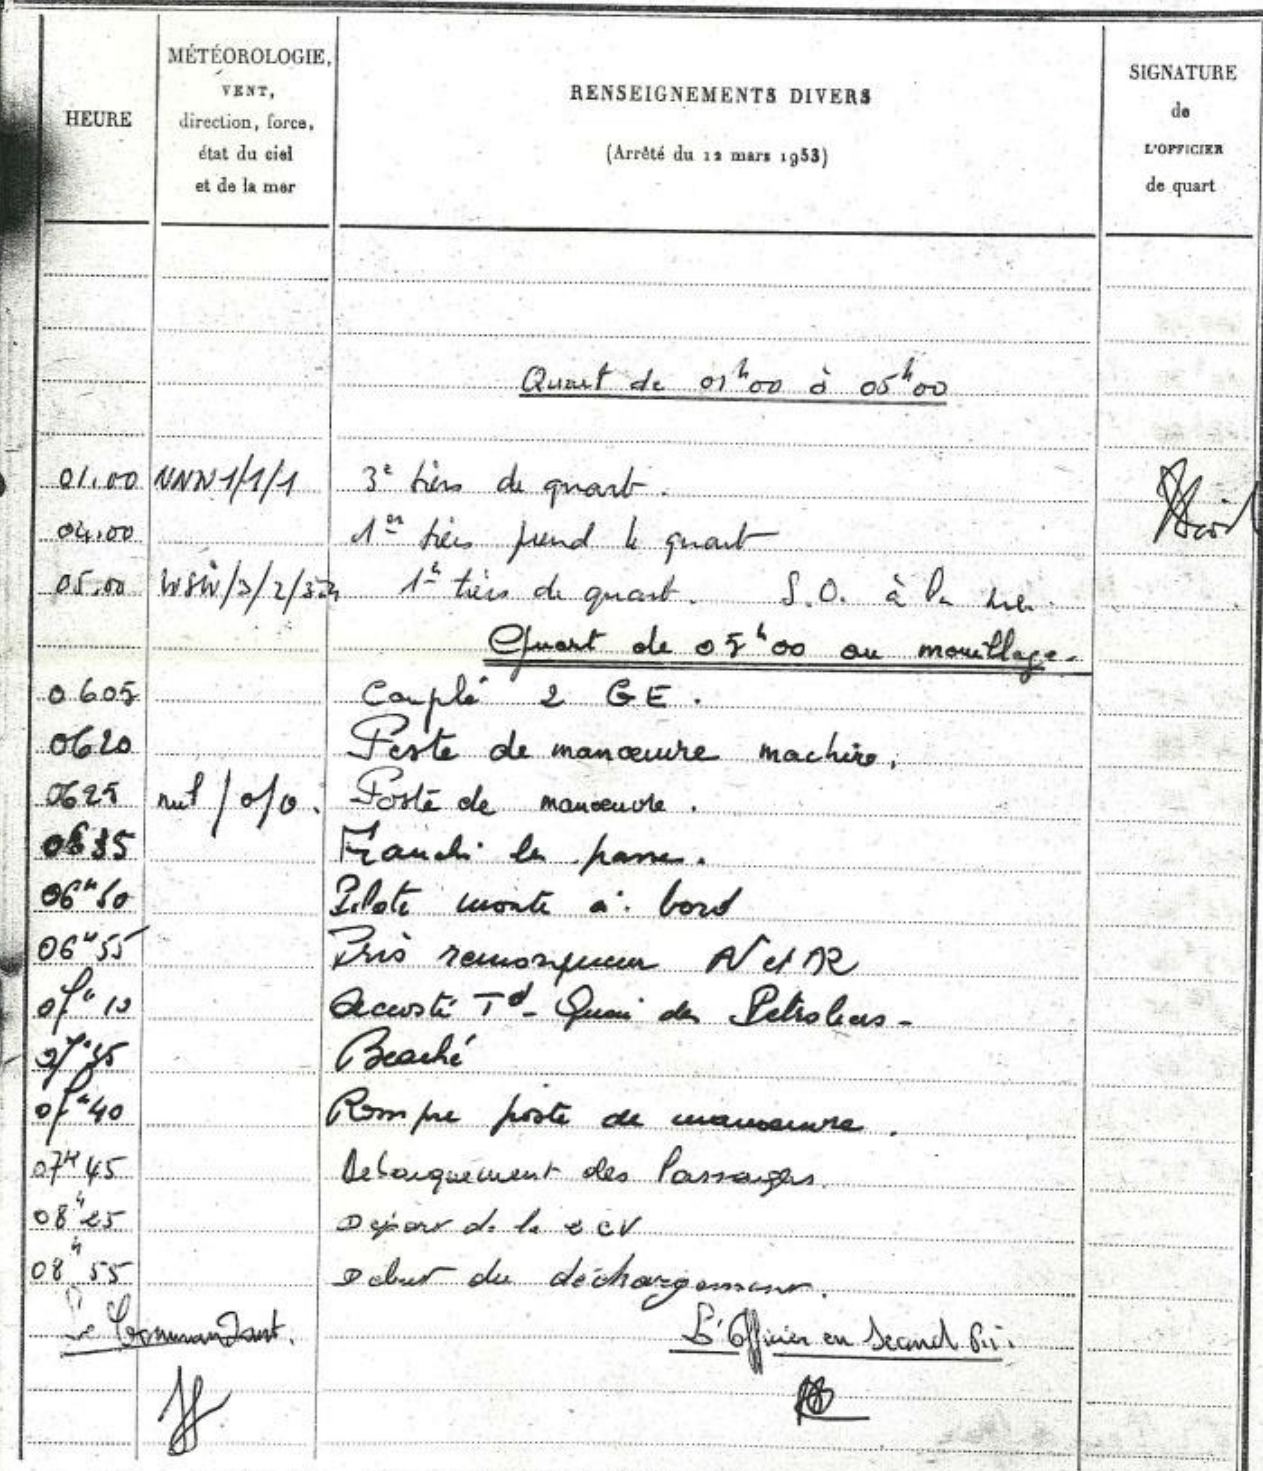 HEURE
MÉTÉOROLOGIE,
VENT,
direction, force,
état du ciel
et de la mer
RENSEIGNEMENTS DIVERS
(Arrêté du 12 mars 1953)
SIGNATURE
de
L'OFFICIER
de quart
Quart de 01h00 à 05h00
01.00 NNW 1/1/1 3e tiers de quart.
04.00 1er tiers prend le quart
05.00 WSW/3/2/ 1er tiers de quart. S.O. à la
Quart de 05h00 au mouillage.
0605 Couplé 2 GE.
0620 Poste de manœuvre machine.
0625 nul/0/0. Poste de manœuvre.
0635 Franchi les passes.
06h50 Pilote monte à bord
06h55 Pris remorqueur AV et AR
07h10 Accosté Td - Quai des Pétroliers -
07h35 Beaché
07h40 Rompre poste de manœuvre.
07H45 Débarquement des Passagers.
08h25 Départ de la
08h55 Début du déchargement.
Le Commandant.
L'Officier en Second